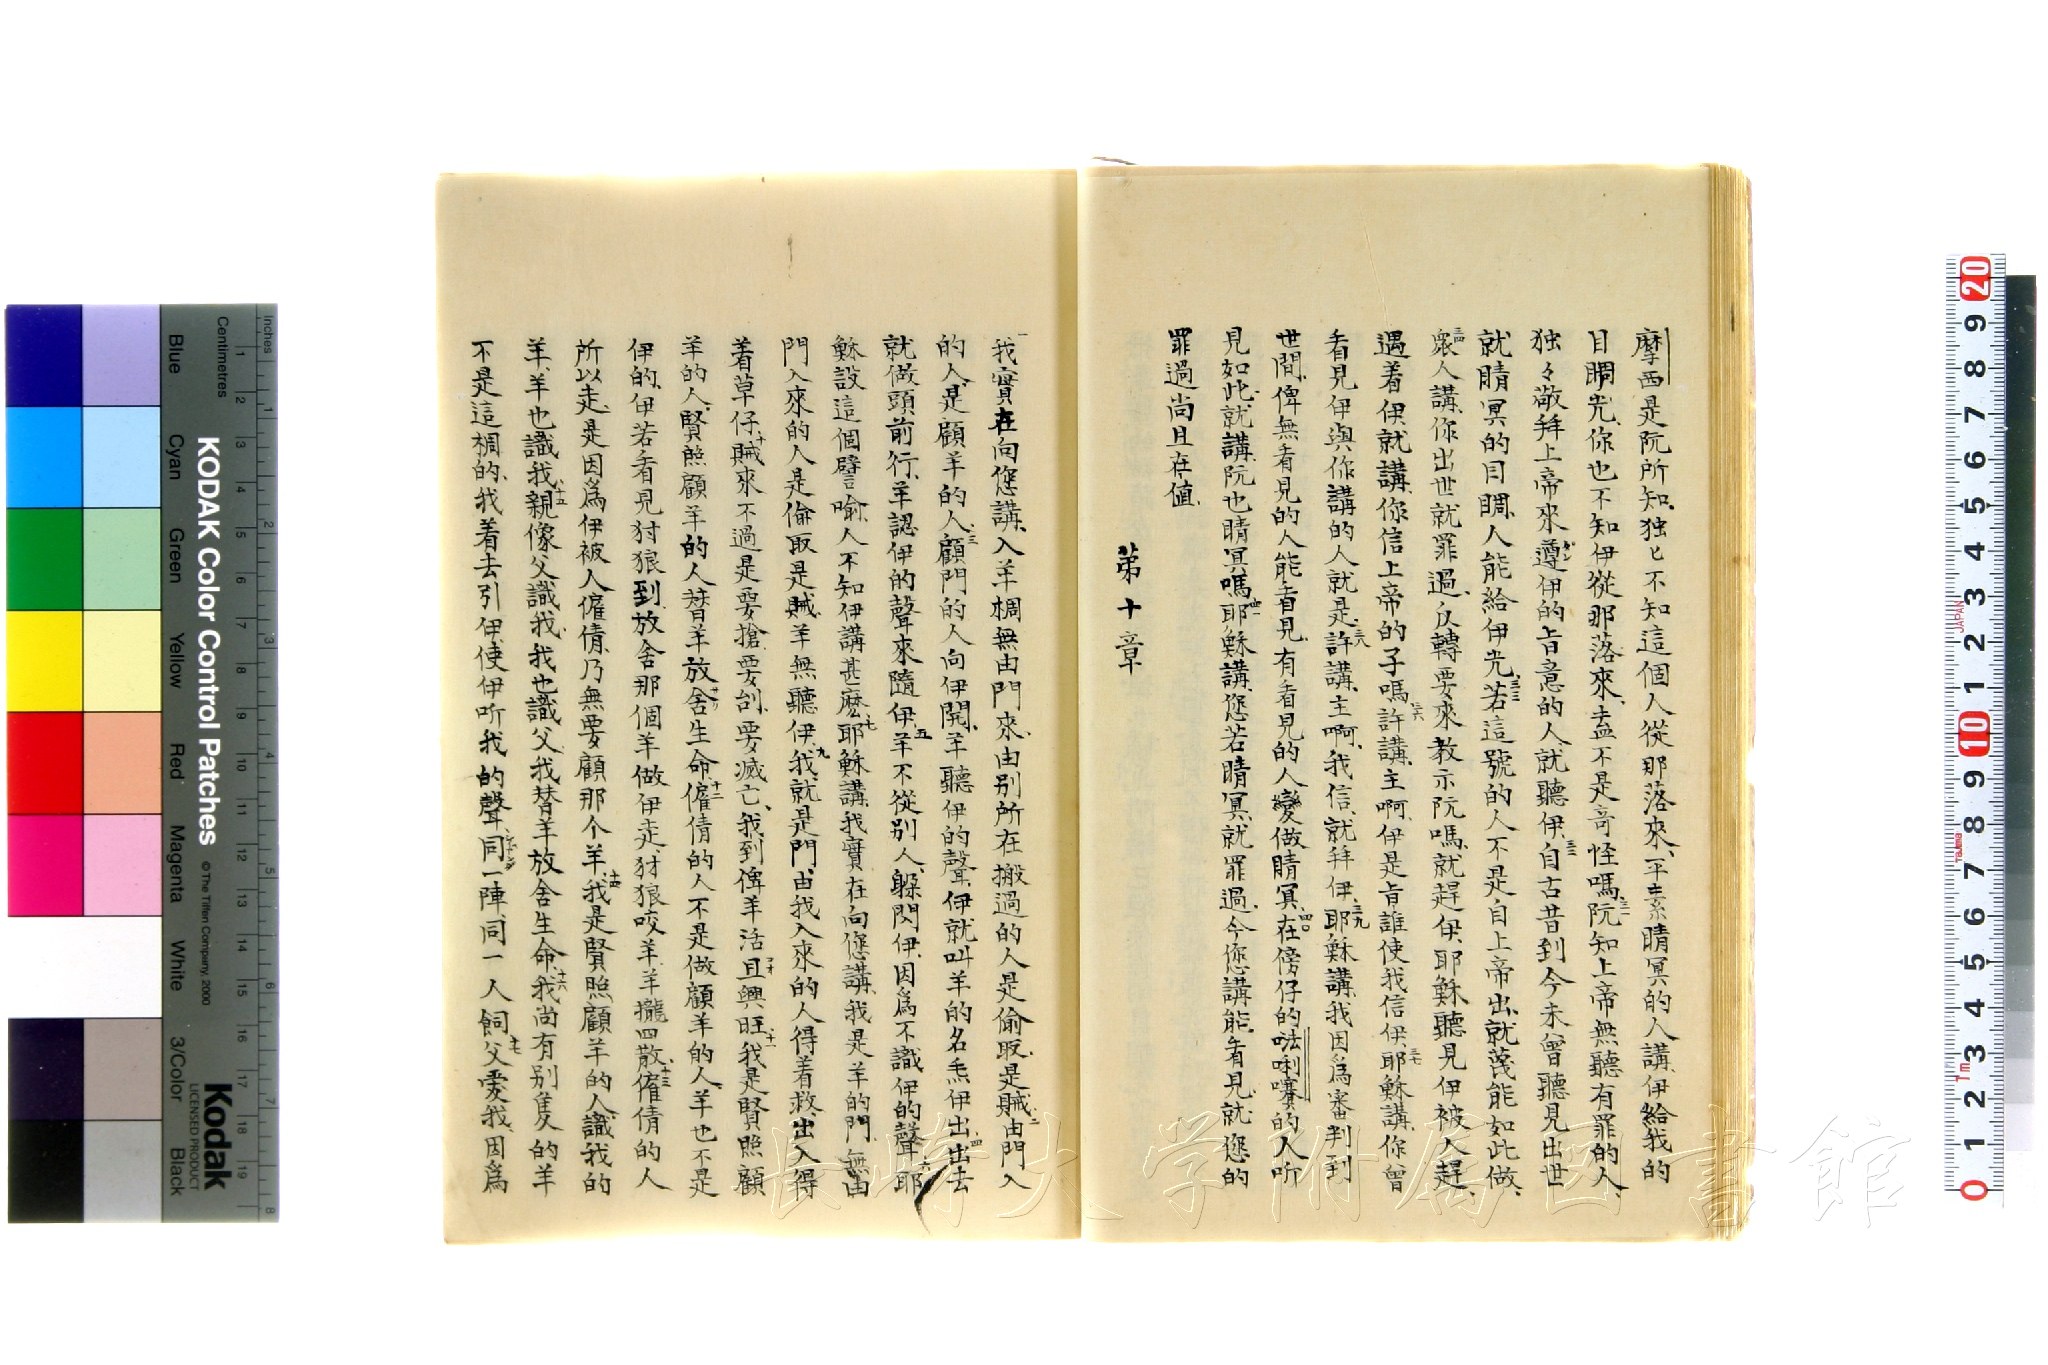 摩西是阮所知、独〻不知這個人從那落來、平素睛冥的人講、伊給我的
目睭光、你也不知伊從那落來、盍不是奇怪嗎、三一阮知上帝無聽有罪的人、
独々敬拜上帝來遵伊的旨意的人、就聽伊、三二自古昔到今未曾聽見出世
就睛冥的目睭、人能給伊光、三三若這號的人不是自上帝出、就蔑能如此做、
三四衆人講、你出世就罪過、反轉要來教示阮嗎、就趕伊、耶穌聽見伊被人趕、
遇着伊就講、你信上帝的子嗎、三六許講、主啊、伊是甚誰使我信伊、三七耶穌講、你曾
看見伊、與你講的人就是、三八許講、主啊、我信、就拜伊、三九耶穌講、我因爲審判到
世間、俾無看見的人能看見、有看見的人變做睛冥、四〇在傍仔的𠵽唎㘔的人听
見如此、就講、阮也睛冥嗎、四一耶穌講、您若睛冥、就罪過、今您講能看見、就您的
罪過尚且在值、
第十章
一我實在向您講、入羊椆無由門來、由別所在搬過的人、是偷取、是賊、二由門入
的人、是顧羊的人、三顧門的人向伊開、羊聽伊的聲、伊就叫羊的名𤆬伊出、四出去
就做頭前行、羊認伊的聲來隨伊、五羊不從別人、躲閃伊、因爲不識伊的聲、六耶
穌設這個譬喻、人不知伊講甚麽、七耶穌講、我實在向您講、我是羊的門、無由
門入來的人、是偷取、是賊、羊無聽伊、九我就是門、由我入來的人得着救、出入得
着草仔、十賊來不過是要搶、要刣、要滅亡、我到俾羊活、且興旺、十一我是賢照顧
羊的人、賢照顧羊的人替羊放舍生命、十二僱倩的人不是做顧羊的人、羊也不是
伊的、伊若看見犲狼到、放舍那個羊做伊走、犲狼咬羊、羊攏四散、十三僱倩的人
所以走、是因爲伊被人僱倩、乃無要顧那个羊、十四我是賢照顧羊的人、識我的
羊、羊也識我、十五親像父識我、我也識父、我替羊放舍生命、十六我尚有別隻的羊
不是這椆的、我着去引伊、使伊听我的聲、同一陣同一人飼、十七父愛我、因爲
長崎大学附属図書館
KODAK Color Control Patches
© The Tiffen Company, 2000
Kodak
LICENSED PRODUCT
Inches
Centimetres
Blue
Cyan
Green
Yellow
Red
Magenta
White
3/Color
Black